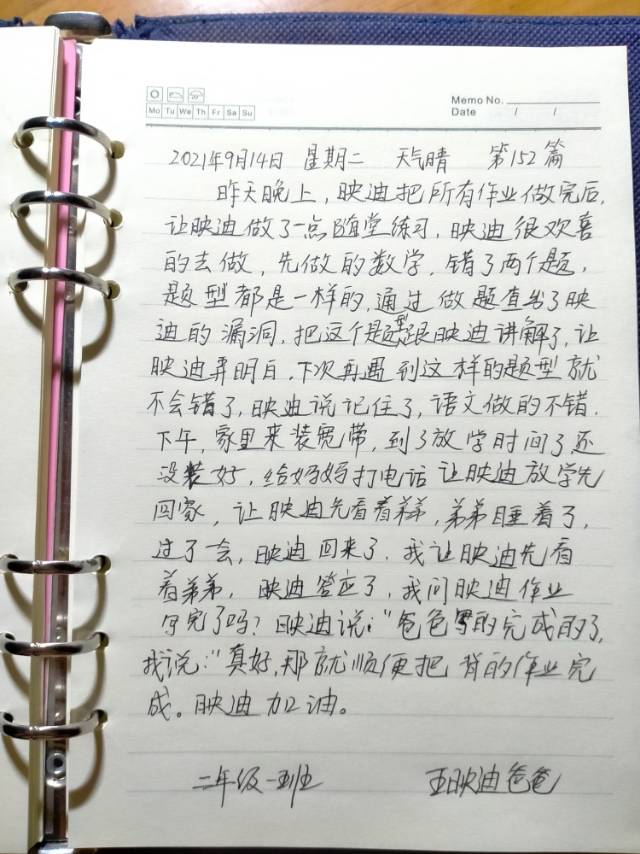 Mo Tu We Th Fr Sa Su
Memo No.
Date / /
2021年9月14日 星期二 天气晴 第152篇
昨天晚上,映迪把所有作业做完后,
让映迪做了一点随堂练习,映迪很欢喜
的去做,先做的数学,错了两个题,
题型都是一样的,通过做题查出了映
迪的漏洞,把这个题型跟映迪讲解了,让
映迪弄明白,下次再遇到这样的题型就
不会错了,映迪说记住了,语文做的不错.
下午,家里来装宽带,到了放学时间了还
没装好,给妈妈打电话让映迪放学先
回家,让映迪先看着弟弟,弟弟睡着了,
过了一会,映迪回来了,我让映迪先看
着弟弟,映迪答应了,我问映迪作业
写完了吗?映迪说:"爸爸写的完成的了,
我说:"真好,那就顺便把背的作业完
成。映迪加油。
二年级一班 王映迪爸爸